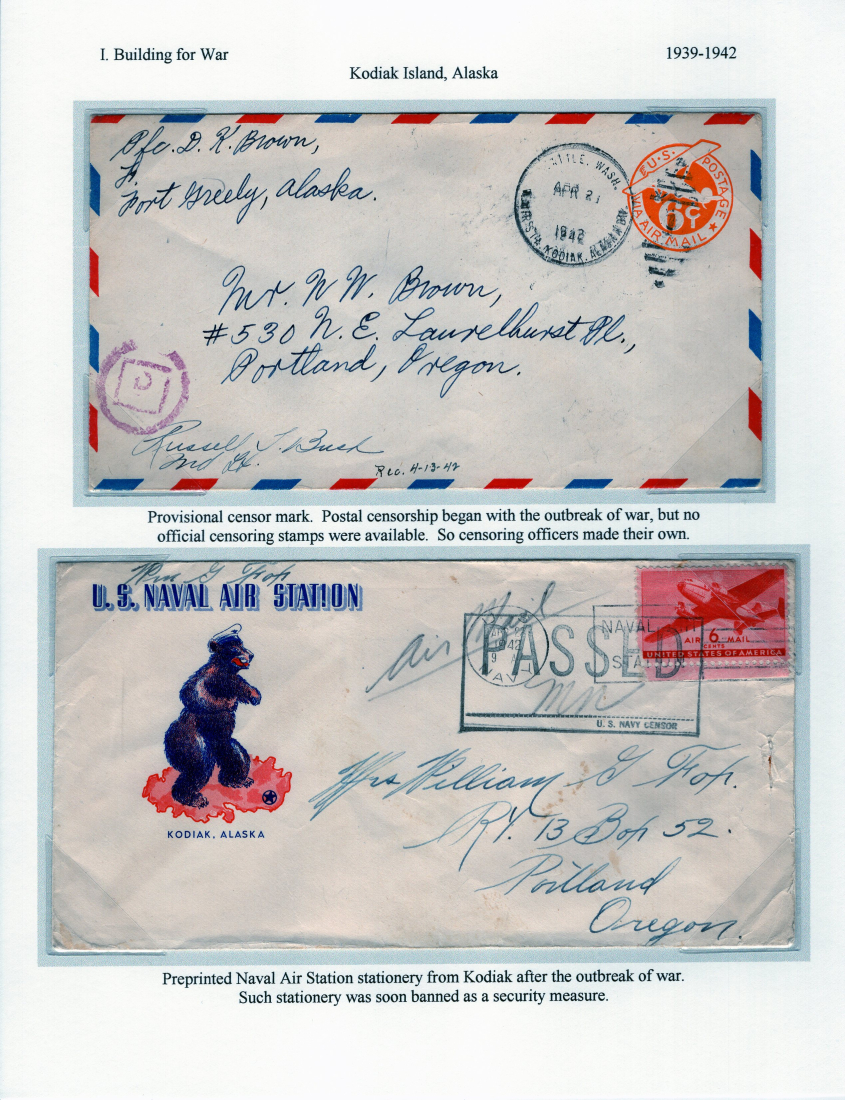 I. Building for War
1939-1942
Kodiak Island, Alaska
Pfc. D. K. Brown,
Ft.
Fort Greely, Alaska.
TTLE, WASH.
APR 21
1942
KODIAK, ALASKA
U.S. POSTAGE
6¢
VIA AIR MAIL
Mr. W W. Brown,
#530 N. E. Laurelhurst Pl.,
Portland, Oregon.
Russell
Rec. 4-13-42
Provisional censor mark. Postal censorship began with the outbreak of war, but no
official censoring stamps were available. So censoring officers made their own.
Wm G Fox
U.S. NAVAL AIR STATION
Air Mail
1942
NAVY
NAVAL AIR
STATION
AIR 6 MAIL
CENTS
UNITED STATES OF AMERICA
PASSED
U. S. NAVY CENSOR
KODIAK, ALASKA
Mrs William G Fox.
RT. 13 Box 52.
Portland
Oregon.
Preprinted Naval Air Station stationery from Kodiak after the outbreak of war.
Such stationery was soon banned as a security measure.